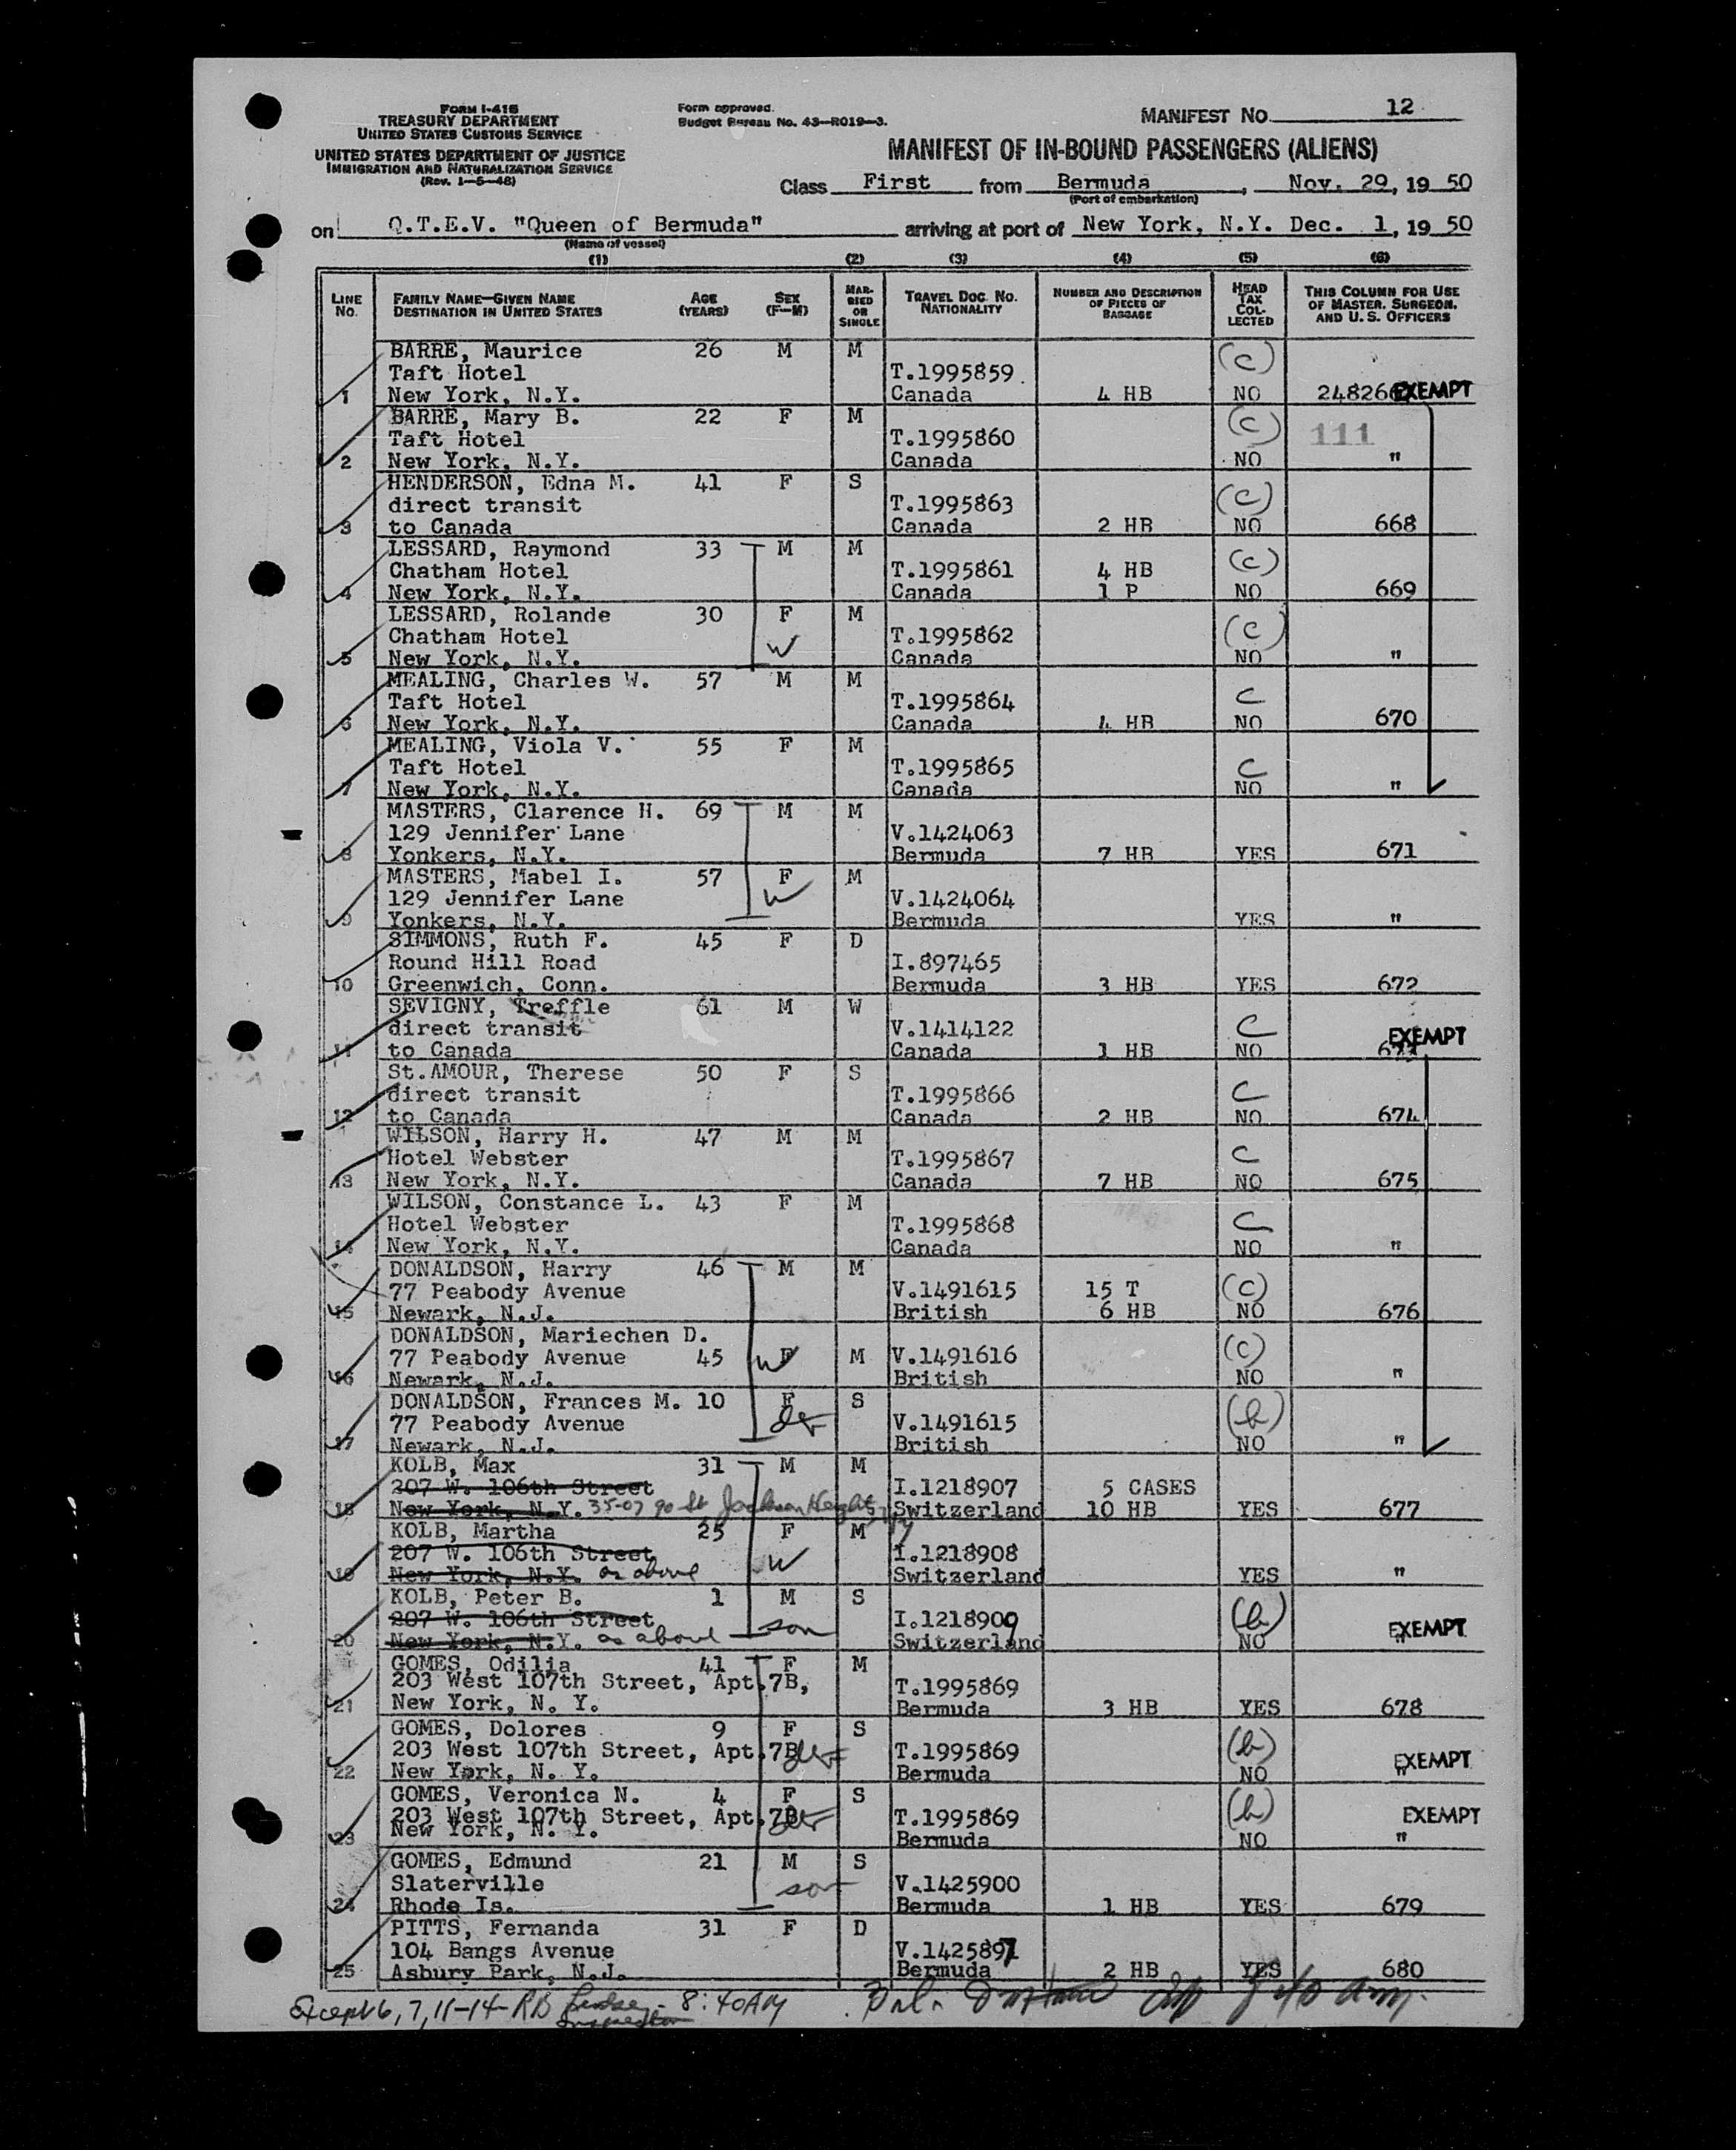 FORM I-415
TREASURY DEPARTMENT
UNITED STATES CUSTOMS SERVICE
UNITED STATES DEPARTMENT OF JUSTICE
IMMIGRATION AND NATURALIZATION SERVICE
(Rev. 1-5-48)
Form approved.
Budget Bureau No. 43-R019-3.
MANIFEST NO. 12
MANIFEST OF IN-BOUND PASSENGERS (ALIENS)
Class First from Bermuda, Nov. 29, 19 50
(Port of embarkation)
on Q.T.E.V. "Queen of Bermuda" arriving at port of New York, N.Y. Dec. 1, 19 50
(Name of vessel)
(1) (2) (3) (4) (5) (6)
LINE NO. FAMILY NAME—GIVEN NAME DESTINATION IN UNITED STATES AGE (YEARS) SEX (F—M) MARRIED OR SINGLE TRAVEL DOC. NO. NATIONALITY NUMBER AND DESCRIPTION OF PIECES OF BAGGAGE HEAD TAX COLLECTED THIS COLUMN FOR USE OF MASTER, SURGEON, AND U. S. OFFICERS
BARRE, Maurice 26 M M (c)
Taft Hotel T.1995859
1 New York, N.Y. Canada 4 HB NO EXEMPT
BARRE, Mary B. 22 F M (c)
Taft Hotel T.1995860 111
2 New York, N.Y. Canada NO "
HENDERSON, Edna M. 41 F S (c)
direct transit T.1995863
3 to Canada Canada 2 HB NO 668
LESSARD, Raymond 33 M M (c)
Chatham Hotel T.1995861 4 HB
4 New York, N.Y. Canada 1 P NO 669
LESSARD, Rolande 30 F M (c)
Chatham Hotel W T.1995862
5 New York, N.Y. Canada NO "
MEALING, Charles W. 57 M M c
Taft Hotel T.1995864
6 New York, N.Y. Canada 4 HB NO 670
MEALING, Viola V. 55 F M c
Taft Hotel T.1995865
7 New York, N.Y. Canada NO "
MASTERS, Clarence H. 69 M M
129 Jennifer Lane V.1424063
8 Yonkers, N.Y. Bermuda 7 HB YES 671
MASTERS, Mabel I. 57 F M
129 Jennifer Lane W V.1424064
9 Yonkers, N.Y. Bermuda YES "
SIMMONS, Ruth F. 45 F D
Round Hill Road I.897465
10 Greenwich, Conn. Bermuda 3 HB YES 672
SEVIGNY, Treffle 61 M W c
direct transit V.1414122 EXEMPT
11 to Canada Canada 1 HB NO 673
St.AMOUR, Therese 50 F S c
direct transit T.1995866
12 to Canada Canada 2 HB NO 674
WILSON, Harry H. 47 M M c
Hotel Webster T.1995867
13 New York, N.Y. Canada 7 HB NO 675
WILSON, Constance L. 43 F M c
Hotel Webster T.1995868
14 New York, N.Y. Canada NO "
DONALDSON, Harry 46 M M
77 Peabody Avenue V.1491615 15 T (c)
15 Newark, N.J. British 6 HB NO 676
DONALDSON, Mariechen D.
77 Peabody Avenue 45 W F M V.1491616 (c)
16 Newark, N.J. British NO "
DONALDSON, Frances M. 10 F S (b)
77 Peabody Avenue V.1491615
17 Newark, N.J. British NO "
KOLB, Max 31 M M
207 W. 106th Street I.1218907 5 CASES
18 New York, N.Y. 35-07 90 St Jackson Heights, NY Switzerland 10 HB YES 677
KOLB, Martha 25 F M
207 W. 106th Street W I.1218908
19 New York, N.Y. as above Switzerland YES "
KOLB, Peter B. 1 M S (b)
207 W. 106th Street I.1218909
20 New York, N.Y. as above son Switzerland NO " EXEMPT
GOMES, Odilia 41 F M
203 West 107th Street, Apt.7B, T.1995869
21 New York, N. Y. Bermuda 3 HB YES 678
GOMES, Dolores 9 F S
203 West 107th Street, Apt.7B T.1995869 (b)
22 New York, N. Y. Bermuda NO " EXEMPT
GOMES, Veronica N. 4 F S (b)
203 West 107th Street, Apt.7B T.1995869 EXEMPT
23 New York, N. Y. Bermuda NO "
GOMES, Edmund 21 M S
Slaterville son V.1425900
24 Rhode Is. Bermuda 1 HB YES 679
PITTS, Fernanda 31 F D
104 Bangs Avenue V.1425897
25 Asbury Park, N.J. Bermuda 2 HB YES 680
Except 6, 7, 11-14- RD Inspector 8:40AM